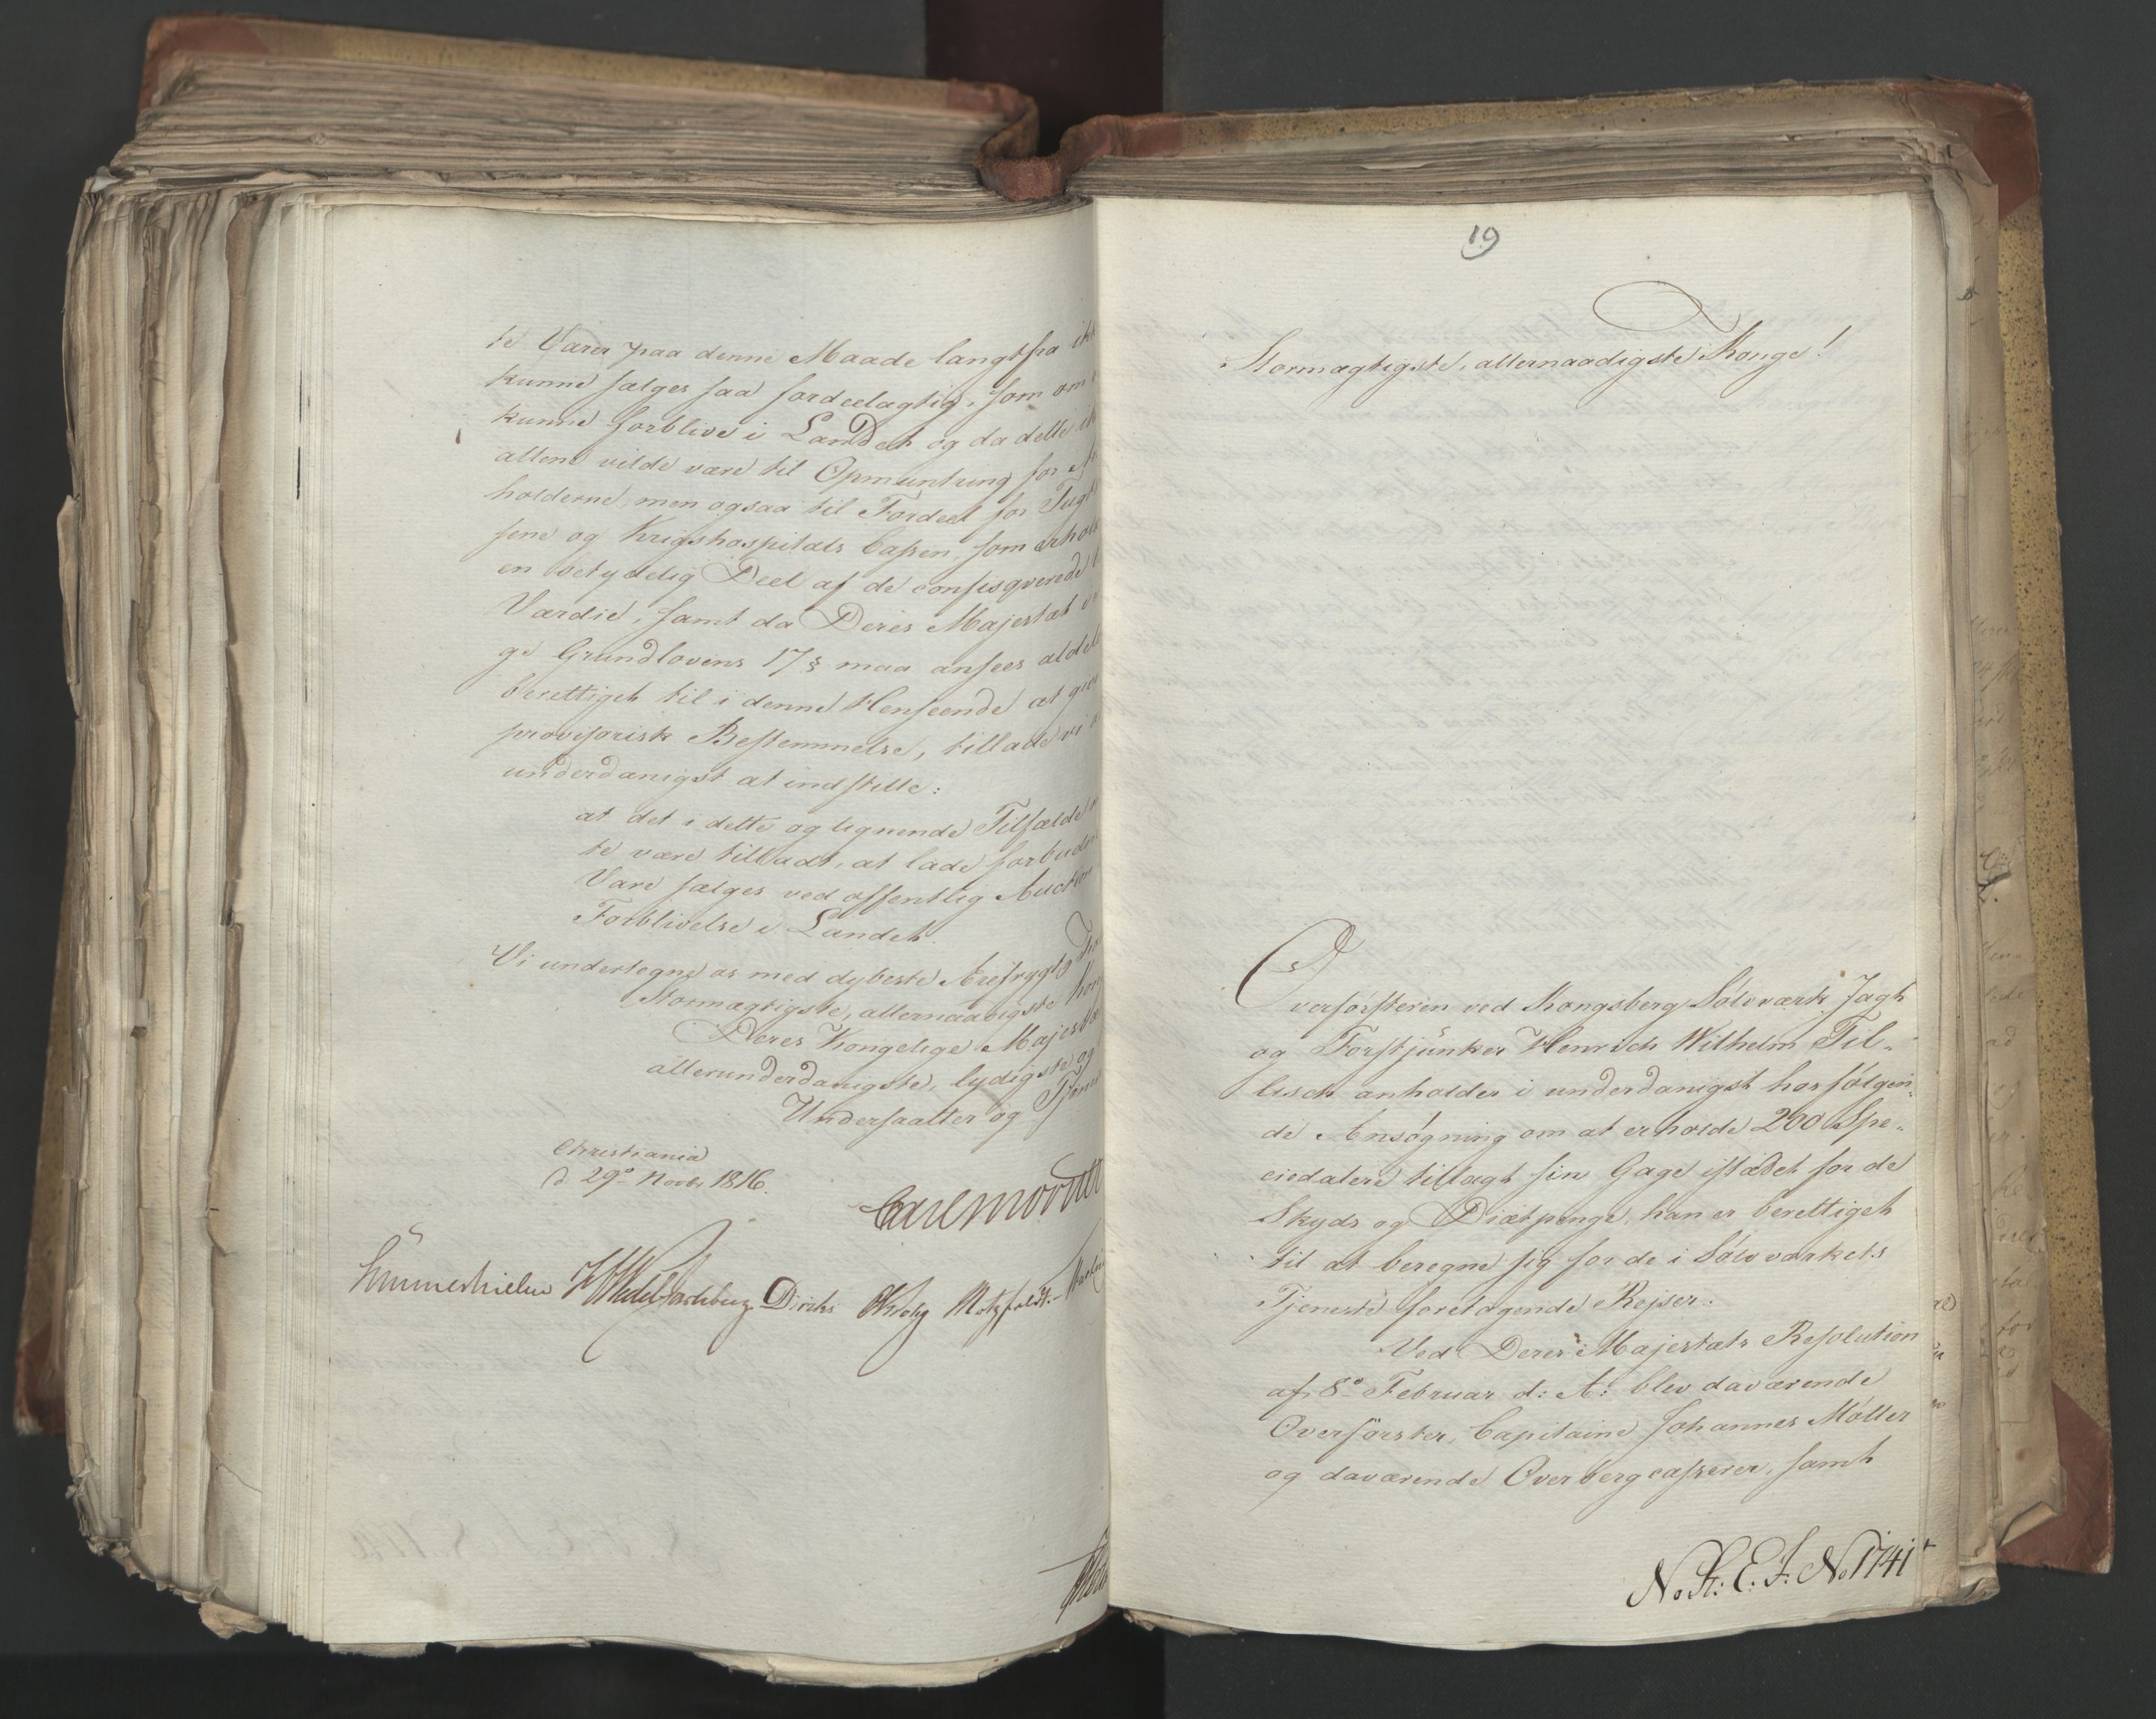 te Varer paa denne Maade langtfra ikk
kunne sælges saa fordeelagtig, som om
kunne forblive i Landet og da dette ik
allene vilde være til Opmuntring for
holderne, men ogsaa til Fordeel for Tugt
sene og Krigshospitals Cassen, som erhol
en betydelig Deel af de confisqverede
Værdie, samt da Deres Majestæt
ge Grundlovens 17 § maa ansees aldel
berettiget til i denne Henseende at giv
provisorisk Bestemmelse, tillade vi
underdanigst at indstille:
at det i dette og lignende Tilfælde
te være tilladt, at lade forbudne
Vare sælges ved offentlig Auction
Forblivelse i Landet.
Vi undertegne os med dybeste Ærefrygt
Stormægtigste, allernaadigste Kon
Deres Kongelige Majestæ
allerunderdanigste, lydigste og
Undersaatter og Tjener
Christiania
d 29º Novbr 1816.
Carl Mörner
Sommerhielm Wedel Jarlsberg Diriks Krohg Motzfeldt
19
Stormægtigste, allernaadigste Konge!
Overförsteren ved Kongsberg Sölvværk Jagt
og Forstjunker Henrich Wilhelm Til-
lisch anholder i underdanigst hosfölgen-
de Ansögning om at erholde 200 Spe-
ciedalere tillagt sin Gage istædet for de
Skyds og Diætpenge, han er berettiget
til at beregne sig for de i Sölvværkets
Tjeneste foretagende Rejser.
Ved Deres Majestæts Resolution
af 8º Februar d: A: blev daværende
Overförster, Capitaine Johannes Möller
og daværende Overbergcasserer, samt
No St: E. J. No 1741